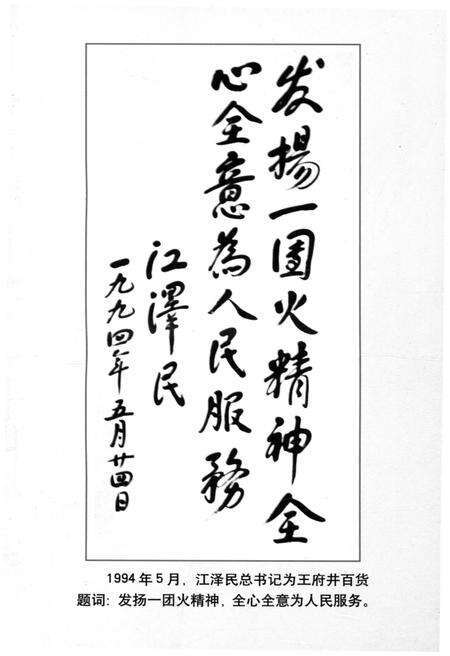 发揚一团火精神全
心全意為人民服務
江澤民
一九九四年五月廿四日
1994年5月，江泽民总书记为王府井百货
题词：发扬一团火精神，全心全意为人民服务。